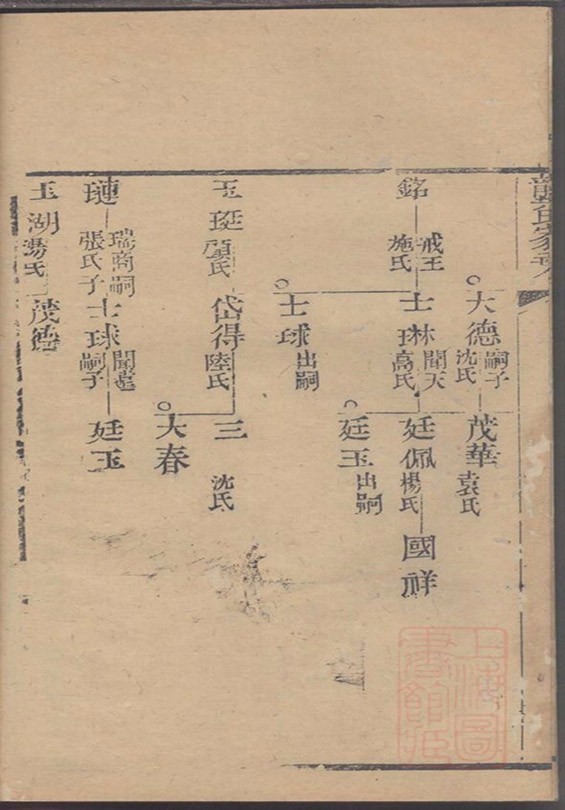 氏家
大德 嗣子
沈氏
茂華
袁氏
銘 戒王
施氏
士林 聞天
高氏
廷佩
楊氏
國祥
廷玉 出嗣
士球 出嗣
玉珽
顧氏
岱得
陸氏
三
沈氏
大春
璉 瑞商嗣
張氏子
士球
嗣子
廷玉
玉湖
湯氏
茂德
上海圖
書館